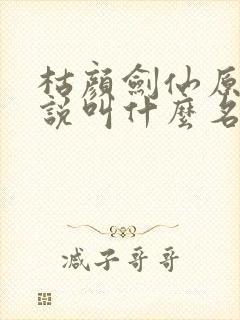 枯顏劍仙原
說叫什麼名
减子哥哥